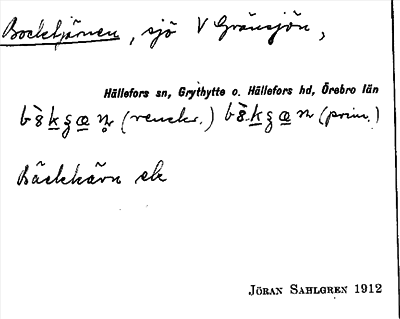 Bocktjärnen, sjö V Gränsjön,
Hällefors sn, Grythytte o. Hällefors hd, Örebro län
(renskr.) (prim.)
Bäckkärn ek
JÖRAN SAHLGREN 1912